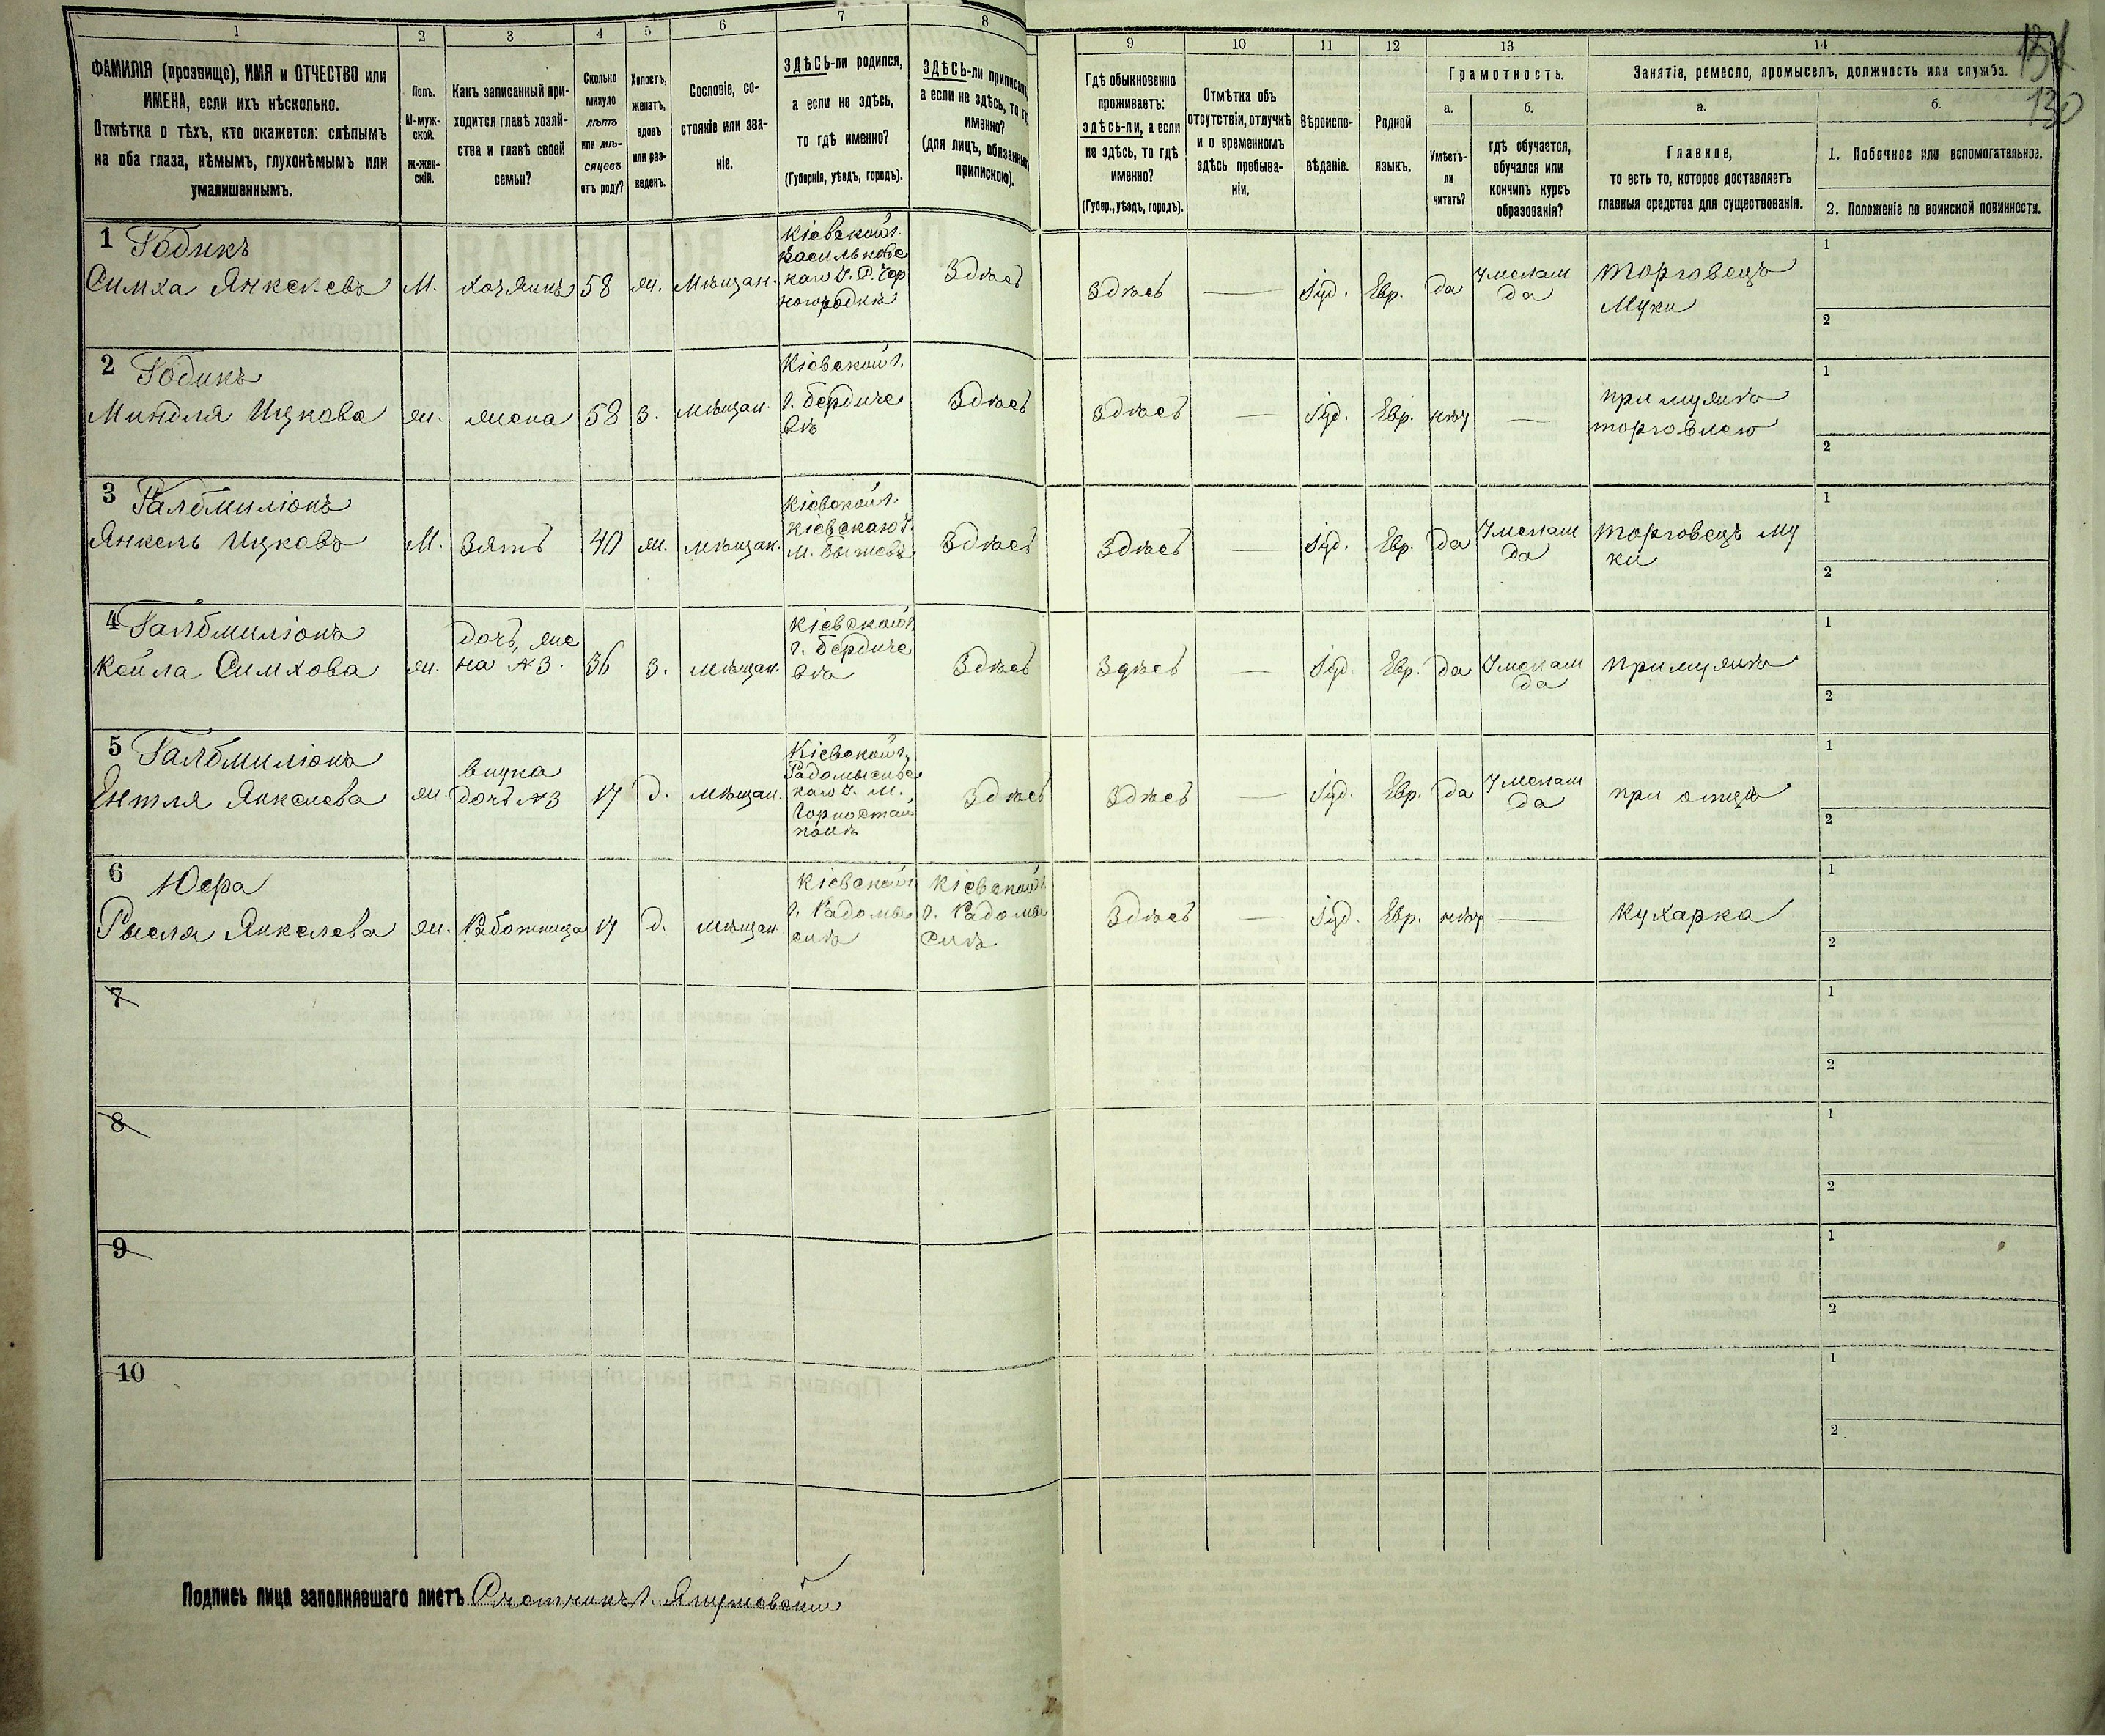 1
2
3
4
5
6
7
8
9
10
11
12
13
14
ФАМИЛІЯ (прозвище), ИМЯ и ОТЧЕСТВО или
ИМЕНА, если ихъ нѣсколько.
Отмѣтка о тѣхъ, кто окажется: слѣпымъ
на оба глаза, нѣмымъ, глухонѣмымъ или
умалишеннымъ.
Полъ.
М-муж-
ской.
Ж-жен-
скій.
Какъ записанный при-
ходится главѣ хозяй-
ства и главѣ своей
семьи?
Сколько
минуло
лѣтъ
или мѣ-
сяцевъ
отъ роду?
Холостъ,
женатъ,
вдовъ
или раз-
веденъ.
Сословіе, со-
стояніе или зва-
ніе.
ЗДѢСЬ-ли родился,
а если не здѣсь,
то гдѣ именно?
(Губернія, уѣздъ, городъ).
ЗДѢСЬ-ли приписанъ,
а если не здѣсь, то гдѣ
именно?
(для лицъ, обязанныхъ
припискою).
Гдѣ обыкновенно
проживаетъ:
здѣсь-ли, а если
не здѣсь, то гдѣ
именно?
(Губер., уѣздъ, городъ).
Отмѣтка объ
отсутствіи, отлучкѣ
и о временномъ
здѣсь пребыва-
ніи.
Вѣроиспо-
вѣданіе.
Родной
языкъ.
Грамотность.
а.
б.
Умѣетъ-
ли
читать?
гдѣ обучается,
обучался или
кончилъ курсъ
образованія?
Занятіе, ремесло, промыселъ, должность или служба.
130
а.
б.
Главное,
то есть то, которое доставляетъ
главныя средства для существованія.
1. Побочное или вспомогательное.
2. Положеніе по воинской повинности.
1 Годикъ
Симха Янкелевъ
М.
хозяинъ
58
ж.
Мѣщан.
Кіевской г.
Васильковс
каго у.
Здѣсь
Здѣсь
—
Іуд.
Евр.
да
да
торговецъ
муки
1
2
2 Годикъ
Миндля Ицкова
ж.
жена
58
з.
мѣщан.
Кіевской г.
г. Бердиче
вѣ
Здѣсь
Здѣсь
—
Іуд.
Евр.
нѣт
—
при мужѣ
торговлею
1
2
3 Галбмиліонъ
Янкель Ицковъ
М.
Зять
40
ж.
мѣщан.
Кіевской г.
Кіевскаго у.
Здѣсь
Здѣсь
—
Іуд.
Евр.
да
да
торговецъ му
ки
1
2
4 Галбмиліонъ
Койла Симхова
ж.
дочь, же
на № 3.
36
з.
мѣщан.
Кіевской г.
г. Бердиче
вѣ
Здѣсь
Здѣсь
—
Іуд.
Евр.
да
да
при мужѣ
1
2
5 Галбмиліонъ
Ентля Янкелева
ж.
внука
дочь № 3
17
д.
мѣщан.
Кіевской г.
Радомысльс
каго у. м.
Горностай
полѣ
Здѣсь
Здѣсь
—
Іуд.
Евр.
да
да
при отцѣ
1
2
6 Юфра
Рысля Янкелева
ж.
Работница
17
д.
мѣщан
Кіевской г.
г. Радомы
слѣ
Кіевской г.
г. Радомы
слѣ.
Здѣсь
—
Іуд.
Евр.
нѣт
—
кухарка
1
2
7
1
2
8
1
2
9
1
2
10
1
2
Подпись лица заполнявшаго листъ Счотчикъ